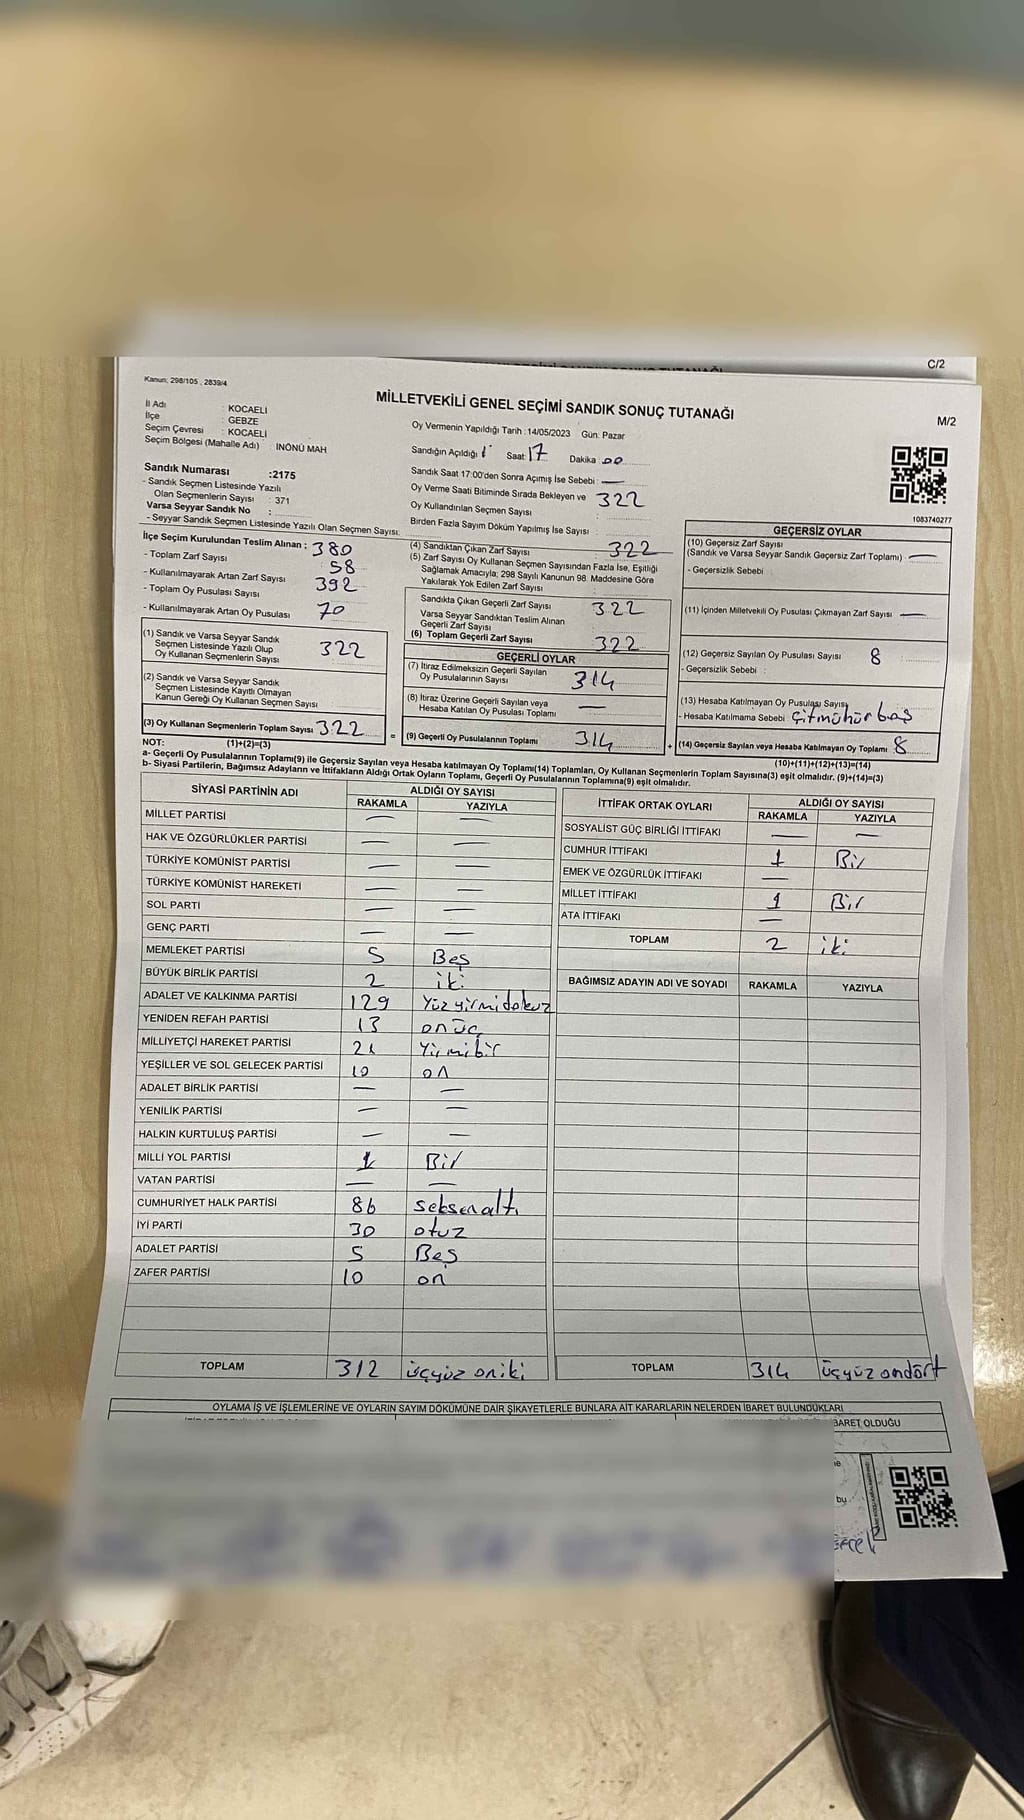 C/2
Kanun: 298/105 , 2839/4
MİLLETVEKİLİ GENEL SEÇİMİ SANDIK SONUÇ TUTANAĞI
M/2
İl Adı : KOCAELİ
İlçe : GEBZE
Seçim Çevresi : KOCAELİ
Seçim Bölgesi (Mahalle Adı) İNÖNÜ MAH
Sandık Numarası :2175
- Sandık Seçmen Listesinde Yazılı
Olan Seçmenlerin Sayısı : 371
Varsa Seyyar Sandık No :
- Seyyar Sandık Seçmen Listesinde Yazılı Olan Seçmen Sayısı:
Oy Vermenin Yapıldığı Tarih :14/05/2023 Gün: Pazar
Sandığın Açıldığı Saat 17 Dakika : 00
Sandık Saat 17:00'den Sonra Açımış İse Sebebi : —
Oy Verme Saati Bitiminde Sırada Bekleyen ve
Oy Kullandırılan Seçmen Sayısı 322
Birden Fazla Sayım Döküm Yapılmış İse Sayısı :
1083740277
İlçe Seçim Kurulundan Teslim Alınan :
- Toplam Zarf Sayısı 380
- Kullanılmayarak Artan Zarf Sayısı 58
- Toplam Oy Pusulası Sayısı 392
- Kullanılmayarak Artan Oy Pusulası 70
(1) Sandık ve Varsa Seyyar Sandık
Seçmen Listesinde Yazılı Olup
Oy Kullanan Seçmenlerin Sayısı 322
(2) Sandık ve Varsa Seyyar Sandık
Seçmen Listesinde Kayıtlı Olmayan
Kanun Gereği Oy Kullanan Seçmen Sayısı
(3) Oy Kullanan Seçmenlerin Toplam Sayısı 322
(4) Sandıktan Çıkan Zarf Sayısı 322
(5) Zarf Sayısı Oy Kullanan Seçmen Sayısından Fazla İse, Eşitliği
Sağlamak Amacıyla; 298 Sayılı Kanunun 98. Maddesine Göre
Yakılarak Yok Edilen Zarf Sayısı
Sandıkta Çıkan Geçerli Zarf Sayısı 322
Varsa Seyyar Sandıktan Teslim Alınan
Geçerli Zarf Sayısı
(6) Toplam Geçerli Zarf Sayısı 322
GEÇERLİ OYLAR
(7) İtiraz Edilmeksizin Geçerli Sayılan
Oy Pusulalarının Sayısı 314
(8) İtiraz Üzerine Geçerli Sayılan veya
Hesaba Katılan Oy Pusulası Toplamı —
= (9) Geçerli Oy Pusulalarının Toplamı 314
GEÇERSİZ OYLAR
(10) Geçersiz Zarf Sayısı
(Sandık ve Varsa Seyyar Sandık Geçersiz Zarf Toplamı) —
- Geçersizlik Sebebi
(11) İçinden Milletvekili Oy Pusulası Çıkmayan Zarf Sayısı —
(12) Geçersiz Sayılan Oy Pusulası Sayısı 8
- Geçersizlik Sebebi :
(13) Hesaba Katılmayan Oy Pusulası Sayısı
- Hesaba Katılmama Sebebi Çiftmühür baş
+ (14) Geçersiz Sayılan veya Hesaba Katılmayan Oy Toplamı 8
NOT: (1)+(2)=(3)
(10)+(11)+(12)+(13)=(14)
a- Geçerli Oy Pusulalarının Toplamı(9) ile Geçersiz Sayılan veya Hesaba katılmayan Oy Toplamı(14) Toplamları, Oy Kullanan Seçmenlerin Toplam Sayısına(3) eşit olmalıdır. (9)+(14)=(3)
b- Siyasi Partilerin, Bağımsız Adayların ve İttifakların Aldığı Ortak Oyların Toplamı, Geçerli Oy Pusulalarının Toplamına(9) eşit olmalıdır.
SİYASİ PARTİNİN ADI ALDIĞI OY SAYISI
RAKAMLA YAZIYLA
MİLLET PARTİSİ — —
HAK VE ÖZGÜRLÜKLER PARTİSİ — —
TÜRKİYE KOMÜNİST PARTİSİ — —
TÜRKİYE KOMÜNİST HAREKETİ — —
SOL PARTİ — —
GENÇ PARTİ — —
MEMLEKET PARTİSİ 5 Beş
BÜYÜK BİRLİK PARTİSİ 2 iki
ADALET VE KALKINMA PARTİSİ 129 Yüzyirmidokuz
YENİDEN REFAH PARTİSİ 13 onüç
MİLLİYETÇİ HAREKET PARTİSİ 21 Yirmibir
YEŞİLLER VE SOL GELECEK PARTİSİ 10 on
ADALET BİRLİK PARTİSİ — —
YENİLİK PARTİSİ — —
HALKIN KURTULUŞ PARTİSİ — —
MİLLİ YOL PARTİSİ 1 Bir
VATAN PARTİSİ — —
CUMHURİYET HALK PARTİSİ 86 seksenaltı
İYİ PARTİ 30 otuz
ADALET PARTİSİ 5 Beş
ZAFER PARTİSİ 10 on
TOPLAM 312 üçyüz oniki
İTTİFAK ORTAK OYLARI ALDIĞI OY SAYISI
RAKAMLA YAZIYLA
SOSYALİST GÜÇ BİRLİĞİ İTTİFAKI — —
CUMHUR İTTİFAKI 1 Bir
EMEK VE ÖZGÜRLÜK İTTİFAKI —
MİLLET İTTİFAKI 1 Bir
ATA İTTİFAKI —
TOPLAM 2 iki
BAĞIMSIZ ADAYIN ADI VE SOYADI RAKAMLA YAZIYLA
TOPLAM 314 üçyüz ondört
OYLAMA İŞ VE İŞLEMLERİNE VE OYLARIN SAYIM DÖKÜMÜNE DAİR ŞİKAYETLERLE BUNLARA AİT KARARLARIN NELERDEN İBARET BULUNDUKLARI
BARET OLDUĞU
bu